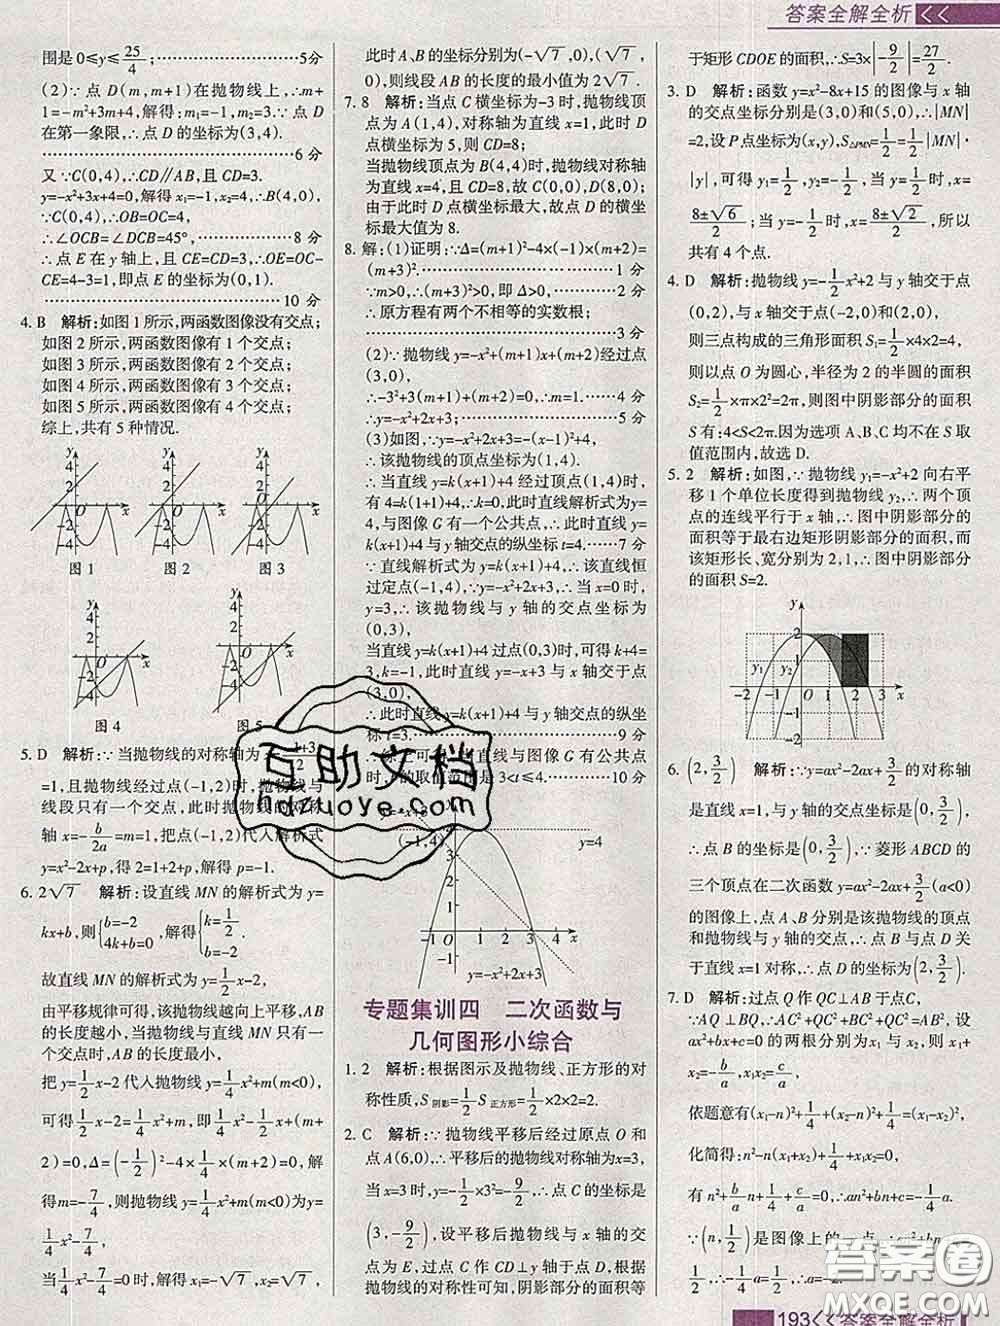 答案全解全析<<
围是0≤y≤25/4;……5分
(2)∵点D(m,m+1)在抛物线上,∴m+
1=-m²+3m+4,解得:m₁=-1,m₂=3.∵点D
在第一象限,∴点D的坐标为(3,4).
……6分
又∵C(0,4),∴CD∥AB,且CD=3.
y=-x²+3x+4=0,解得x₁=-1,x₂=4,∴B(4,0),
∵C(0,4),∴OB=OC=4.
∴∠OCB=∠DCB=45°,……8分
∴点E在y轴上,且CE=CD=3,∴OE=OC-
CE=4-3=1,即点E的坐标为(0,1).
……10分
4.B 解析:如图1所示,两函数图像没有交点;
如图2所示,两函数图像有1个交点;
如图3所示,两函数图像有2个交点;
如图4所示,两函数图像有3个交点;
如图5所示,两函数图像有4个交点;
综上,共有5种情况.
图1 图2 图3
图4 图5
5.D 解析:∵当抛物线的对称轴为
=1,且抛物线经过点(-1,2)时,抛物线与
线段只有一个交点,此时抛物线的对称
轴x=-b/2a=m=1,把点(-1,2)代入解析式
y=x²-2x+p,得2=1+2+p,得p=-1.
6.2√7 解析:设直线MN的解析式为y=
kx+b,则{b=-2 4k+b=0,解得{k=1/2 b=-2.
故直线MN的解析式为y=1/2x-2,
由平移规律可得,该抛物线越向上平移,AB
的长度越小,当抛物线与直线MN只有1个
交点时,AB的长度最小,
把y=1/2x-2代入抛物线y=1/4x²+m(m<0),
可得1/2x-2=1/4x²+m(m<0),即1/4x²-1/2x+(m+
2)=0,Δ=(-1/2)²-4×1/4×(m+2)=0,解
得m=-7/4,则抛物线y=1/4x²+m(m<0)为y=
1/4x²-7/4,
当1/4x²-7/4=0时,解得x₁=-√7,x₂=√7,
此时A、B的坐标分别为(-√7,0),(√7,
0),则线段AB的长度的最小值为2√7.
7.8 解析:当点C横坐标为-3时,抛物线顶
点为A(1,4),对称轴为直线x=1,此时D
点横坐标为5,则CD=8;
当抛物线顶点为B(4,4)时,抛物线对称轴
为直线x=4,且CD=8,故C(0,0),D(8,0);
由于此时D点横坐标最大,故点D的横坐
标最大值为8.
8.解:(1)证明:∵Δ=(m+1)²-4×(-1)×(m+2)=
(m+3)².……1分
∵m>0,∴(m+3)²>0,即Δ>0,……2分
∴原方程有两个不相等的实数根;
……3分
(2)∵抛物线y=-x²+(m+1)x+(m+2)经过点
(3,0),
∴-3²+3(m+1)+(m+2)=0,∴m=1.……4分
∴y=-x²+2x+3;……5分
(3)如图,∵y=-x²+2x+3=-(x-1)²+4,
∴该抛物线的顶点坐标为(1,4).
∴当直线y=k(x+1)+4经过顶点(1,4)时,
有4=k(1+1)+4,∴k=0,此时直线解析式为y=
4,与图像G有一个公共点,∴此时直线y=
k(x+1)+4与y轴交点的纵坐标t=4.……7分
∵直线解析式为y=k(x+1)+4,∴该直线恒
过定点(-1,4),∵y=-x²+2x+3,∴当x=0时,
y=3,∴该抛物线与y轴的交点坐标为
(0,3),
∴当直线y=k(x+1)+4过点(0,3)时,可得k+4=
3,∴k=-1,此时直线y=-x+3与x轴交于点
(3,0),
∴此时直线y=k(x+1)+4与y轴交点的纵坐
标t=3.……9分
综上可知,当直线与图像G有公共点
时,t的取值范围是3<t≤4.……10分
y=-x+3
(-1,4)
y=4
y=-x²+2x+3
专题集训四 二次函数与
几何图形小综合
1.2 解析:根据图示及抛物线、正方形的对
称性质,S阴影=1/2S正方形=1/2×2×2=2.
2.C 解析:∵抛物线平移后经过原点O和
点A(6,0),∴平移后的抛物线对称轴为x=3,
当x=3时,y=-1/2×3²=-9/2,∴点C的坐标为
(3,-9/2),设平移后抛物线与x轴的交点
为D、E,作CD⊥y轴于点D,则根据
抛物线的对称性可知,阴影部分的面积等
于矩形CDOE的面积,∴S=3×|-9/2|=27/2.
3.D 解析:函数y=x²-8x+15的图像与x轴
的交点坐标分别是(3,0)和(5,0),∴|MN|
=2,设P点坐标为(x,y),S△PMN=1/2=1/2|MN|·
|y|,可得y₁=1/2,y₂=-1/2,当y=1/2时,x=
8±√6/2;当y=-1/2时,x=8±√2/2,所以
共有4个点.
4.D 解析:抛物线y=-1/2x²+2与y轴交于点
(0,2),与x轴交于点(-2,0)和(2,0),
则三点构成的三角形面积S₁=1/2×4×2=4,
则以点O为圆心,半径为2的半圆的面积
S₂=1/2×π×2²=2π,则图中阴影部分的面积
S有:4<S<2π.因为选项A、B、C均不在S取
值范围内,故选D.
5.2 解析:如图,∵抛物线y₁=-x²+2向右平
移1个单位长度得到抛物线y₂,∴两个顶
点的连线平行于x轴,∴图中阴影部分的
面积等于最右边矩形阴影部分的面积,而
该矩形长、宽分别为2,1,∴图中阴影部分
的面积S=2.
6.(2,3/2) 解析:∵y=ax²-2ax+3/2的对称轴
是直线x=1,与y轴的交点坐标是(0,3/2),
∴点B的坐标是(0,3/2),∵菱形ABCD的
三个顶点在二次函数y=ax²-2ax+3/2(a<0)
的图像上,点A、B分别是该抛物线的顶点
和抛物线与y轴的交点,∴点B与点D关
于直线x=1对称,∴点D的坐标为(2,3/2).
7.D 解析:过点Q作QC⊥AB于点C,
∵AQ⊥BQ,∴AC²+QC²+QC²+BC²=AB²,设
ax²+bx+c=0的两根分别为x₁与x₂,
依题意有(x₁-n)²+1/4+(x₂-n)²+1/4=(x₁-x₂)²,
化简得:n²-n(x₁+x₂)+1/4+x₁x₂=0.
有n²+b/an+1/4+c/a=0,∴an²+bn+c=-1/4a.
∵(n,1/2)是图像上的一点,∴an²+bn+c=1/2,
193<<答案全解全析
互助文档
hdzuoye.com
答案圈
MXQE.COM